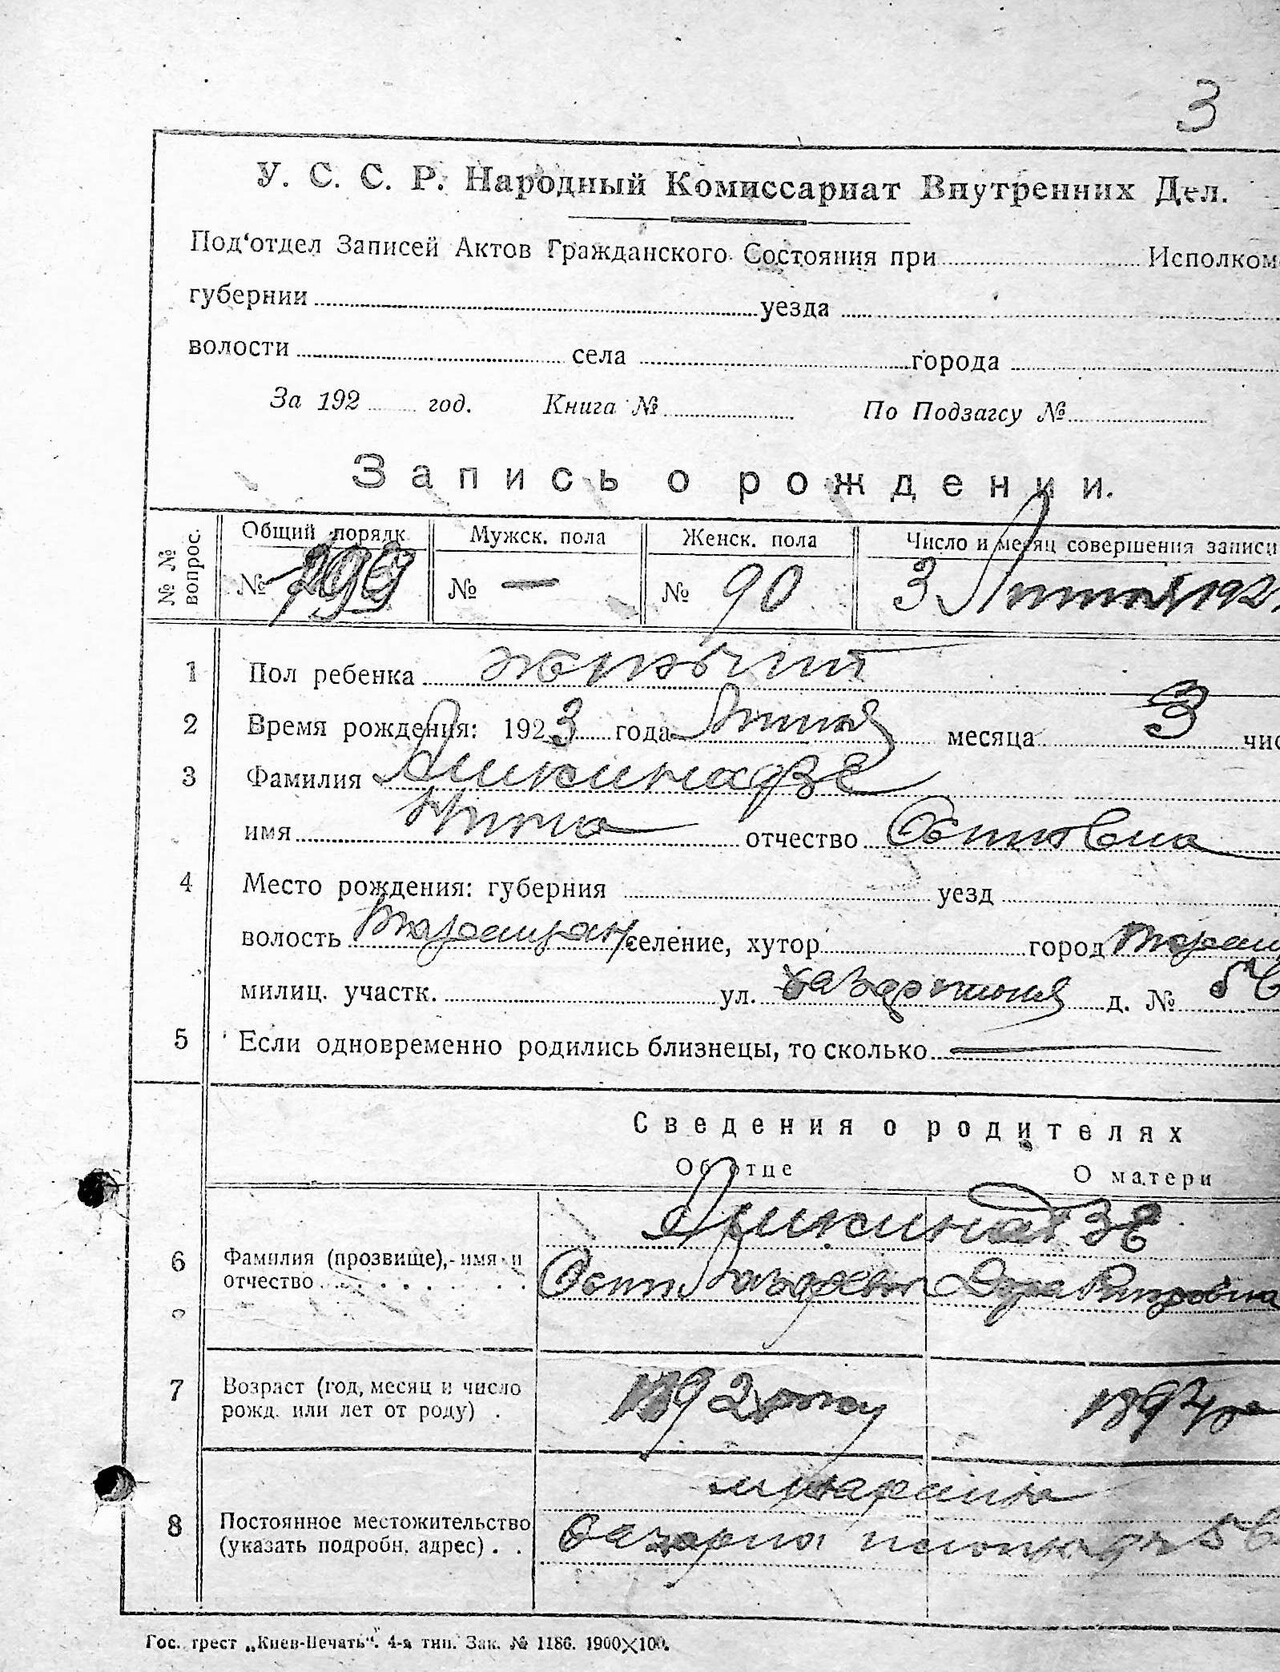 3
У. С. С. Р. Народный Комиссариат Внутренних Дел.
Под'отдел Записей Актов Гражданского Состояния при Исполком
губернии уезда
волости села города
За 192 год. Книга № По Подзагсу №
Запись о рождении.
№ № вопрос.
Общий порядк Мужск. пола Женск. пола Число и месяц совершения записи
№ 199 № — № 90 3 Липня 192
1 Пол ребенка жіночий
2 Время рождения: 1923 года Липня месяца 3 чис
3 Фамилия Ашкинадзе
имя отчество Осиповна
4 Место рождения: губерния уезд
волость Таращан селение, хутор город Таращ
милиц. участк. ул. д. № 56
5 Если одновременно родились близнецы, то сколько —
Сведения о родителях
Об отце О матери
Ашкинадзе
6 Фамилия (прозвище), имя и
отчество
Осип Лазарев Дора
7 Возраст (год, месяц и число
рожд. или лет от роду) .
1892 року 1897
8 Постоянное местожительство
(указать подробн. адрес) . .
м Тараща
базарна площадь 56
Гос. трест „Киев-Печать“. 4-я тип. Зак. № 1186. 1900×100.